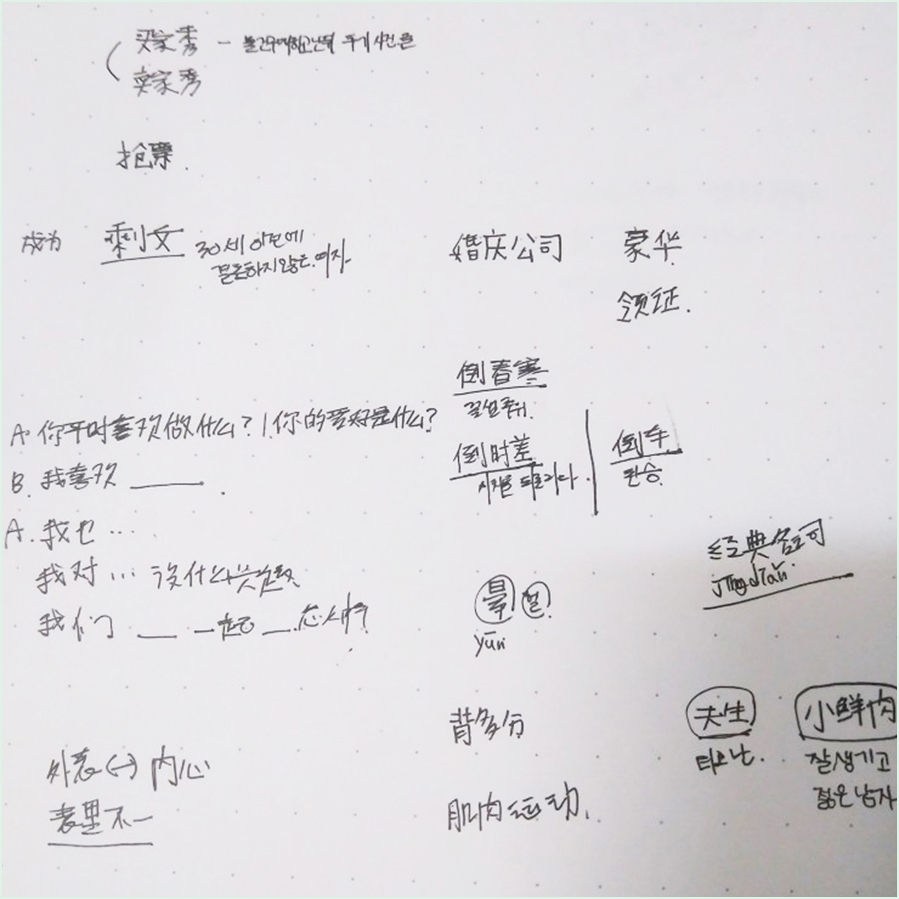 买家秀 -
卖家秀
抢票.
成为 剩女 30세 이전에
결혼하지않은.여자
婚庆公司 豪华
领证.
倒春寒
꽃샘추위.
倒时差
倒车
환승.
A. 你平时喜欢做什么? / 你的爱好是什么?
B. 我喜欢 ____ .
A. 我也 ...
我对 ... 没什么兴趣.
我们 __ 一起 __. 怎么样?
经典
jīngdiǎn
晕
yūn
背多分
肌肉运动.
天生
타고난.
小鲜肉
잘생기고
젊은남자
外表 ↔ 内心
表里不一